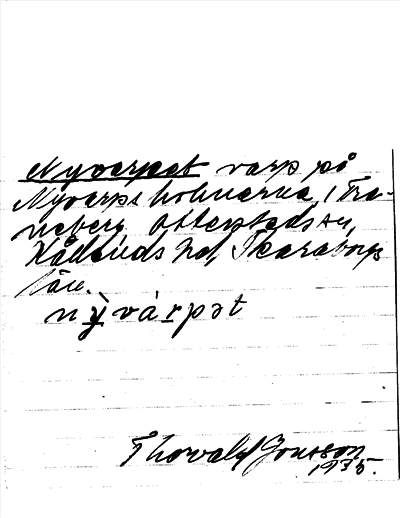 Nyvarpet varp på
Nyvarpsholmarna, i Tra-
neberg Otterstads sn,
Kållands hd, Skaraborgs
län.
nỳvárpət
Thorvald Jonsson
1935.